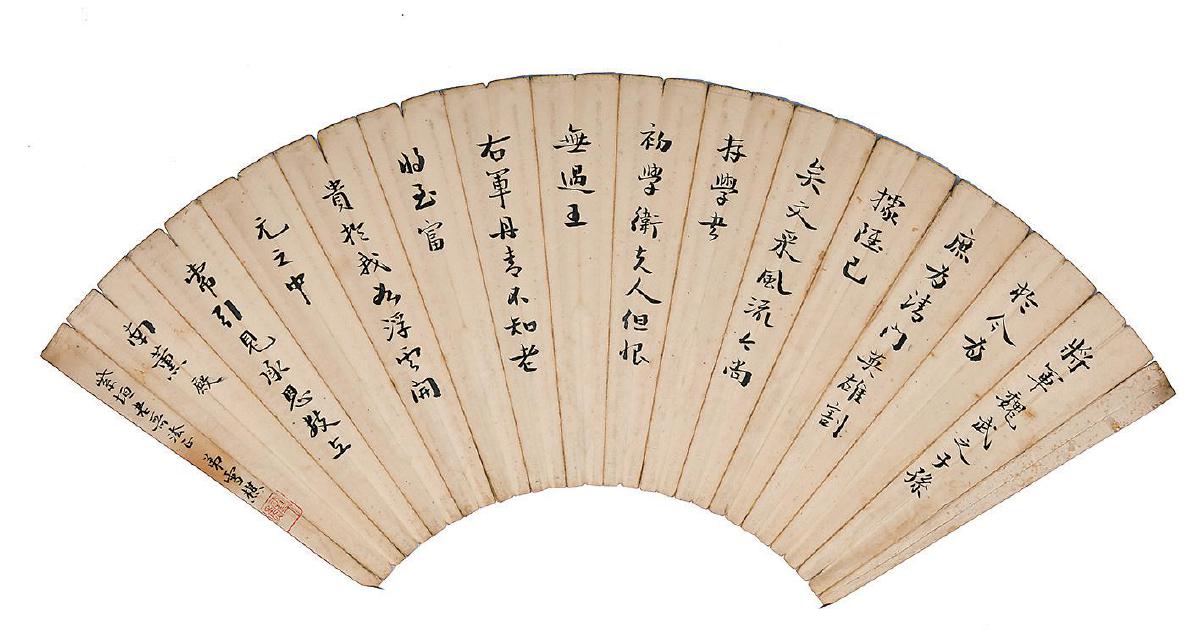 將軍魏武之子孫
於今為
庶為清門英雄割
據雖已
矣文采風流今尚
存學書
初學衛夫人但恨
無過王
右軍丹青不知老
將至富
貴於我如浮雲開
元之中
常引見承恩數上
南薰殿
紫垣老兄法正 弟雪樵